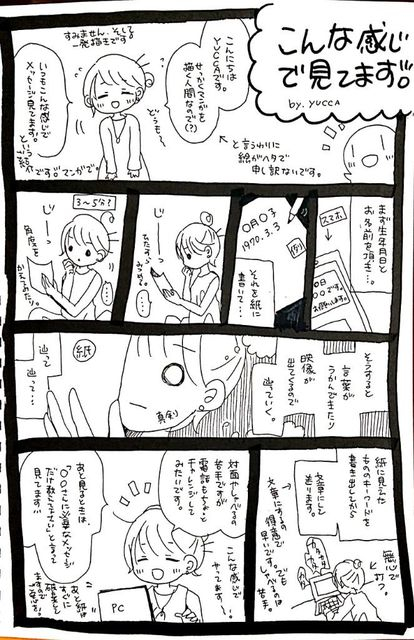 こんな感じ
で見てます。
by. YUCCA
すみません、そして
一発描きです。
こんにちは
YUCCAです。
せっかくマンガを
描く人間なので(?)
いつもこんな感じで
メッセージ見てます。
という紹介です。マンガで。
どうも〜
と言うわりに
絵がヘタで
申し訳ないです。
まず生年月日と
お名前を頂き…。
スマホ
〇月〇子
1970.3.3
(例)
それを紙に
書いて…
じーっ
ひたすら
みつめる。
3〜5分?
じーっ
角度を
かえてみたり。
そうすると
言葉が
うかんできたり
映像が
出てくるので
辿っていく。
紙
真剣
辿って
辿って…
紙に見えた
もののキーワードを
書き出しながら
文章にして
送ります。
文章にするのは
得意で
早いです。でも
しゃべるのは
苦手。
無心で
打つ。
カタカタ
対面やしゃべるの
苦手ですが
電話もちょっと
チャレンジして
みたいです。
こんな感じで
やってます!
あと見るときは、
「〇〇さんに必要なメッセージ
だけ教えて下さい」と言って
見てます…!
PC
あと紙は
すぐに
破棄し
ますので
ご安心を。